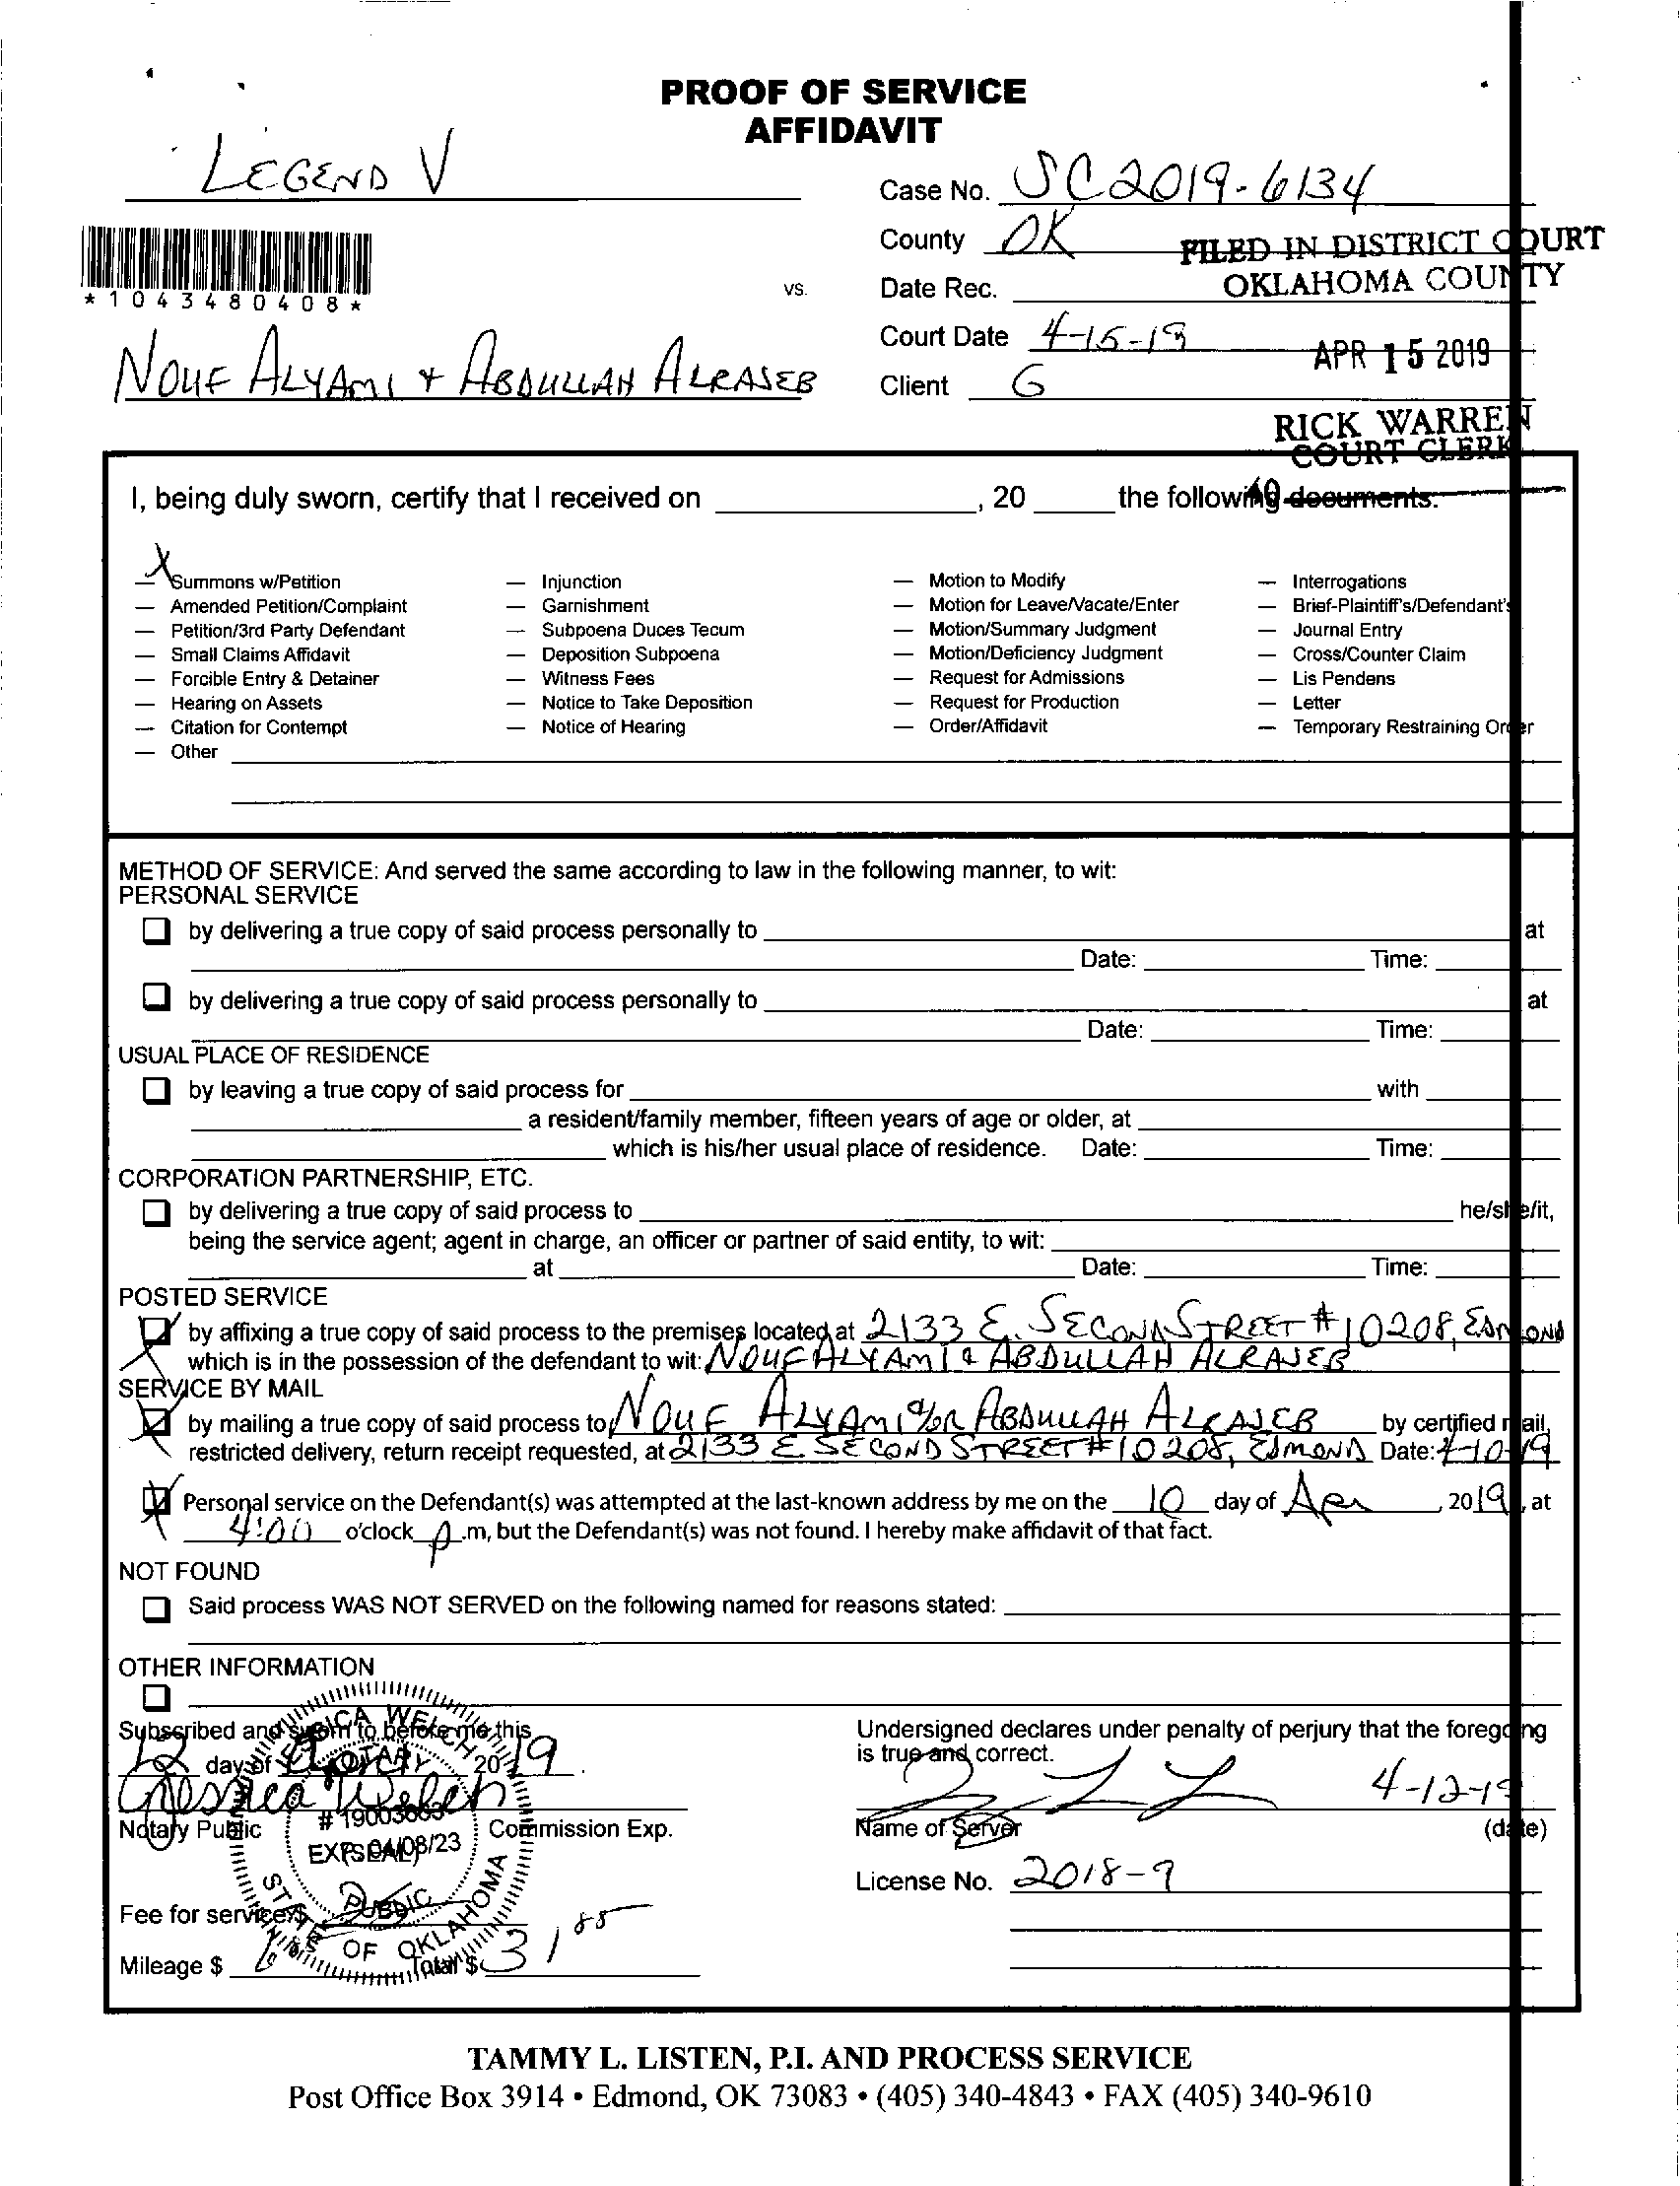 PROOF OF SERVICE
AFFIDAVIT
LEGEND V
Case No. SC2019-6134
County OK
FILED IN DISTRICT COURT
OKLAHOMA COUNTY
*1043480408*
vs.
Date Rec.
Court Date 4-15-19
APR 15 2019
NOUF ALYAMI & ABDULLAH ALRAJEB
Client G
RICK WARREN
COURT CLERK
I, being duly sworn, certify that I received on ____, 20 ____ the following documents:
X Summons w/Petition
— Amended Petition/Complaint
— Petition/3rd Party Defendant
— Small Claims Affidavit
— Forcible Entry & Detainer
— Hearing on Assets
— Citation for Contempt
— Other
— Injunction
— Garnishment
— Subpoena Duces Tecum
— Deposition Subpoena
— Witness Fees
— Notice to Take Deposition
— Notice of Hearing
— Motion to Modify
— Motion for Leave/Vacate/Enter
— Motion/Summary Judgment
— Motion/Deficiency Judgment
— Request for Admissions
— Request for Production
— Order/Affidavit
— Interrogations
— Brief-Plaintiff's/Defendant's
— Journal Entry
— Cross/Counter Claim
— Lis Pendens
— Letter
— Temporary Restraining Order
METHOD OF SERVICE: And served the same according to law in the following manner, to wit:
PERSONAL SERVICE
by delivering a true copy of said process personally to ____ at
Date: ____ Time:
by delivering a true copy of said process personally to ____ at
Date: ____ Time:
USUAL PLACE OF RESIDENCE
by leaving a true copy of said process for ____ with
a resident/family member, fifteen years of age or older, at
which is his/her usual place of residence. Date: ____ Time:
CORPORATION PARTNERSHIP, ETC.
by delivering a true copy of said process to ____ he/she/it,
being the service agent; agent in charge, an officer or partner of said entity, to wit:
at ____ Date: ____ Time:
POSTED SERVICE
by affixing a true copy of said process to the premises located at 2133 E. SECOND STREET #10208, EDMOND
which is in the possession of the defendant to wit: NOUF ALYAMI & ABDULLAH ALRAJEB
SERVICE BY MAIL
by mailing a true copy of said process to NOUF ALYAMI %OR ABDULLAH ALRAJEB by certified mail,
restricted delivery, return receipt requested, at 2133 E SECOND STREET #10208, EDMOND Date: 4-10-19
Personal service on the Defendant(s) was attempted at the last-known address by me on the 10 day of Apr, 2019, at
4:00 o'clock p.m, but the Defendant(s) was not found. I hereby make affidavit of that fact.
NOT FOUND
Said process WAS NOT SERVED on the following named for reasons stated:
OTHER INFORMATION
Subscribed and sworn to before me this
12 day of April 2019.
Jessica Welch
Notary Public
(SEAL)
Commission Exp.
JESSICA WELCH
NOTARY
EXP. 04/08/23
PUBLIC
STATE OF OKLAHOMA
Undersigned declares under penalty of perjury that the foregoing
is true and correct.
4-12-19
Name of Server (date)
License No. 2018-9
Fee for service $ 25
Mileage $ Total $ 31 88
TAMMY L. LISTEN, P.I. AND PROCESS SERVICE
Post Office Box 3914 • Edmond, OK 73083 • (405) 340-4843 • FAX (405) 340-9610